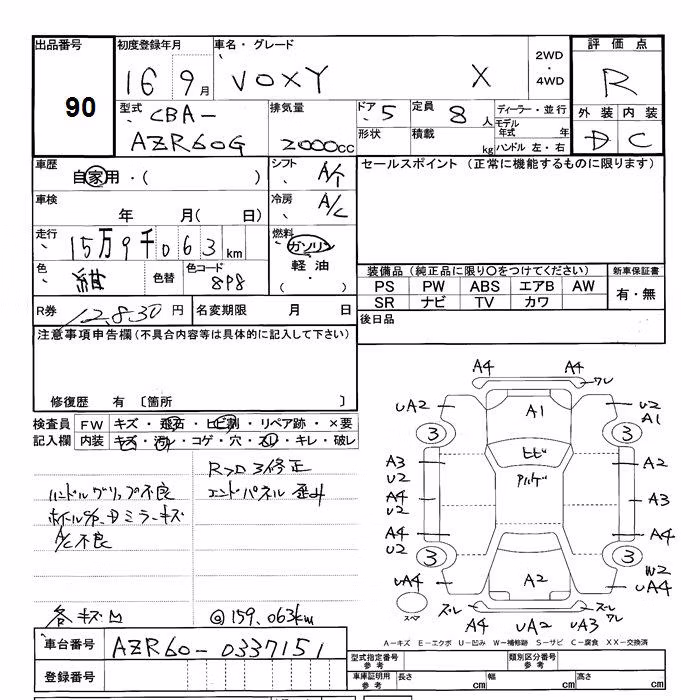 出品番号 初度登録年月 車名・グレード 2WD・4WD 評価点
90 16 9月 VOXY X R
型式 排気量 ドア 5 定員 8人 ディーラー・並行 外装 内装
CBA-
AZR60G 2000cc 形状 積載 kg モデル年式 年 ハンドル 左・右 D C
車歴 自家用・( ) シフト A/T セールスポイント (正常に機能するものに限ります)
車検 年 月( 日) 冷房 A/C
走行 15万9千063km 燃料 ガソリン
色 紺 色替 色コード 8P8 軽油・( )
装備品(純正品に限り〇をつけてください) 新車保証書
PS PW ABS エアB AW 有・無
SR ナビ TV カワ
R券 12,830円 名変期限 月 日 後日品
注意事項申告欄(不具合内容等は具体的に記入して下さい)
修復歴 有 〔箇所 〕
検査員 FW キズ・飛石・ヒビ割・リペア跡・×要
記入欄 内装 キズ・汚れ・コゲ・穴・スレ・キレ・破レ
Rフロ3修正
ハンドルグリップ不良 エンドパネル歪み
ホイールC/P、Dミラーキズ
A/C不良
各キズ凹 @159,063km
A4 A4 ワレ
UA2 A1 U2 A1
3 3
ヒビ
A3 U2 アルゲ A2
A4 U2 A3
A4 U2 A4
3 3
UA4 A2 W2 UA4
スペア ズレ ズレ ワレ
A4 UA2 UA3
A-キズ E-エクボ U-凹み W-補修跡 S-サビ C-腐食 XX-交換済
車台番号 AZR60-0337151
登録番号
型式指定番号 参考 類別区分番号 参考
車庫証明用 参考 長さ cm 幅 cm 高さ cm